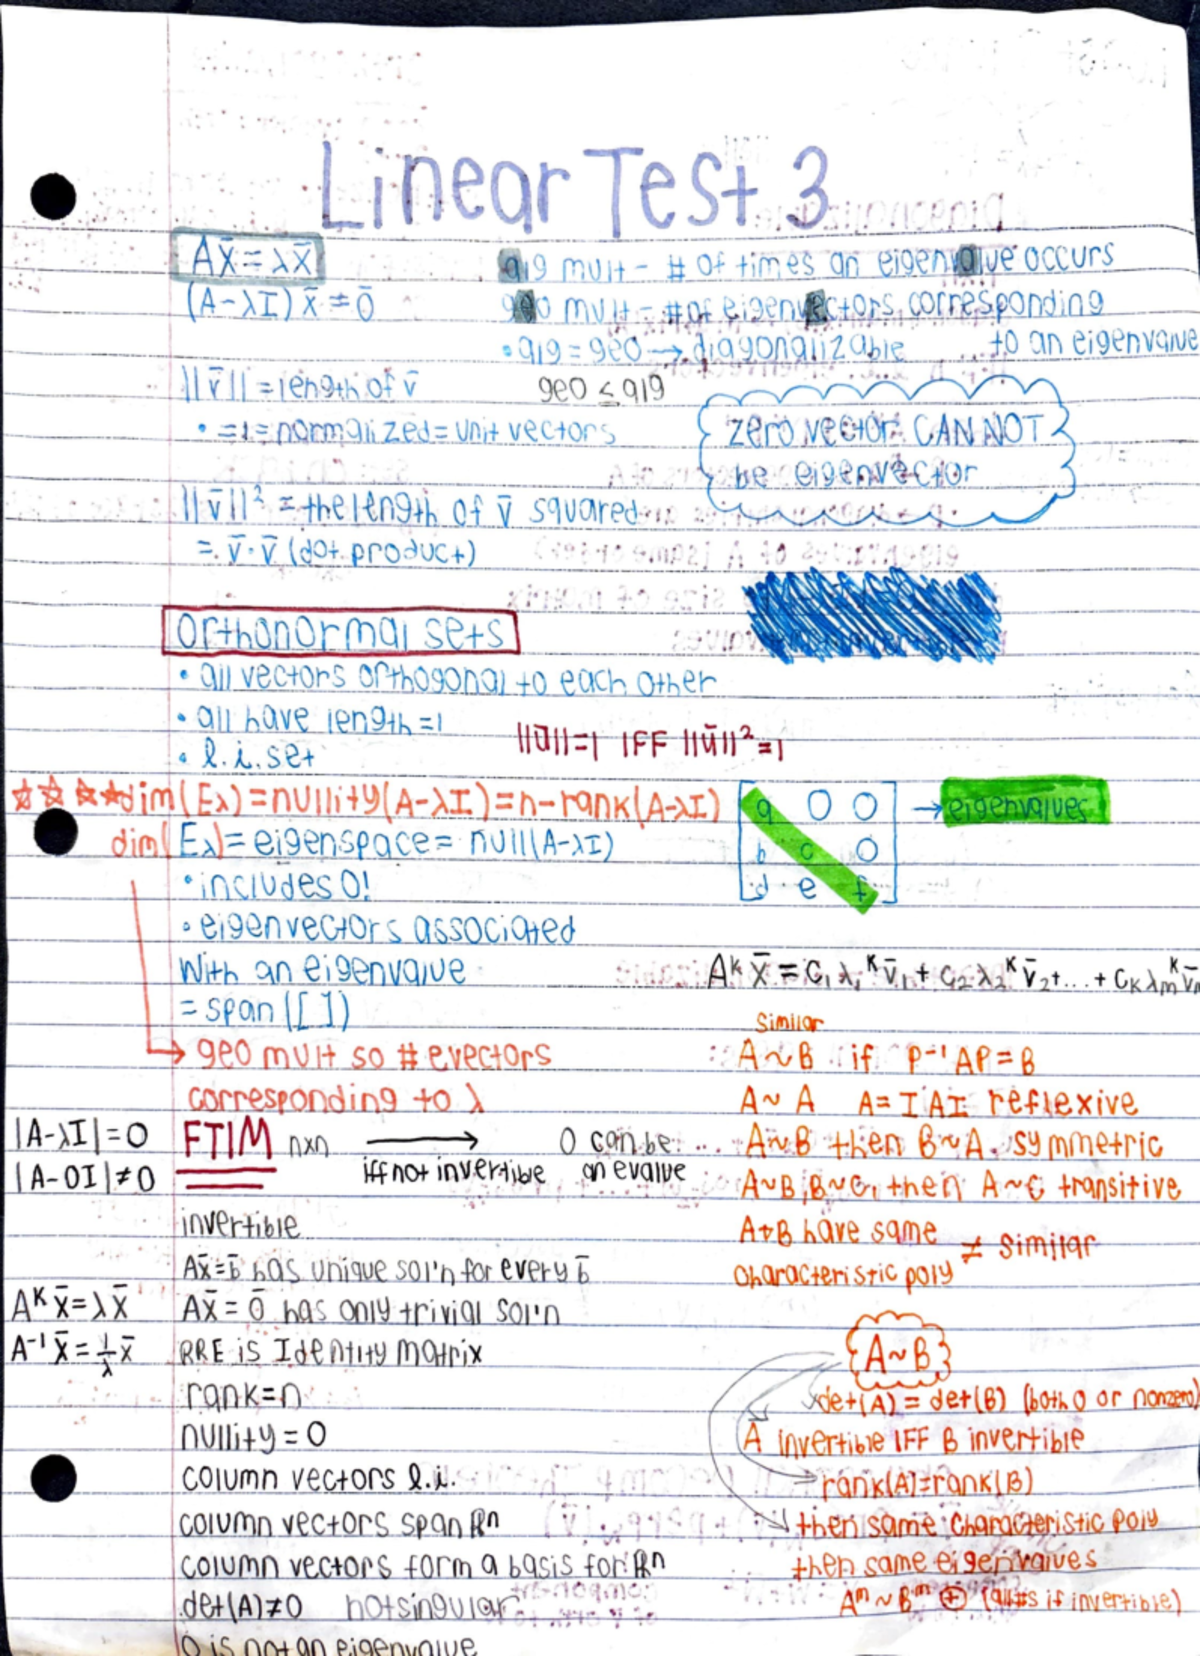 Linear Test 3
Ax̄ = λx̄
(A-λI) x̄ = ō
alg mult - # of times an eigenvalue occurs
geo mult - # of eigenvectors corresponding
to an eigenvalue
• alg = geo → diagonalizable
geo ≤ alg
||v̄|| = length of v̄
• =1= normalized = unit vectors
zero vector CANNOT
be eigenvector
||v̄||² = the length of v̄ squared
= v̄·v̄ (dot product)
orthonormal sets
• all vectors orthogonal to each other
• all have length = 1
• l.i. set
||ū||=1 IFF ||ū||²=1
dim(Eλ) = nullity(A-λI) = n-rank(A-λI)
dim(Eλ) = eigenspace = null(A-λI)
• includes 0!
• eigenvectors associated
with an eigenvalue
= span([ ])
→ geo mult so # evectors
corresponding to λ
a 0 0
b c 0
d e f
→ eigenvalues
Aᴷ x̄ = C₁ λ₁ᴷ v̄₁ + C₂ λ₂ᴷ v̄₂ + ... + Cᴋ λₘᴷ
similar
A ~ B if P⁻¹AP = B
A ~ A A = IAI reflexive
A~B then B~A symmetric
A~B, B~C, then A~C transitive
A+B have same
characteristic poly ≠ similar
|A-λI| = 0
|A-0I| ≠ 0
FTIM nxn → iff not invertible
0 can be
an evalue
invertible
Ax̄=b̄ has unique sol'n for every b̄
Aᴷx̄ = λx̄
Ax̄ = ō has only trivial sol'n
A⁻¹x̄ = 1/λ x̄
RRE is Identity matrix
rank=n
nullity = 0
column vectors l.i.
column vectors span Rn
column vectors form a basis for Rn
det(A)≠0 not singular
0 is not an eigenvalue
A~B
det(A) = det(B) (both 0 or nonzero)
A invertible IFF B invertible
rank(A)=rank(B)
then same characteristic poly
then same eigenvalues
Aᵐ ~ Bᵐ ⊕ (all #s if invertible)